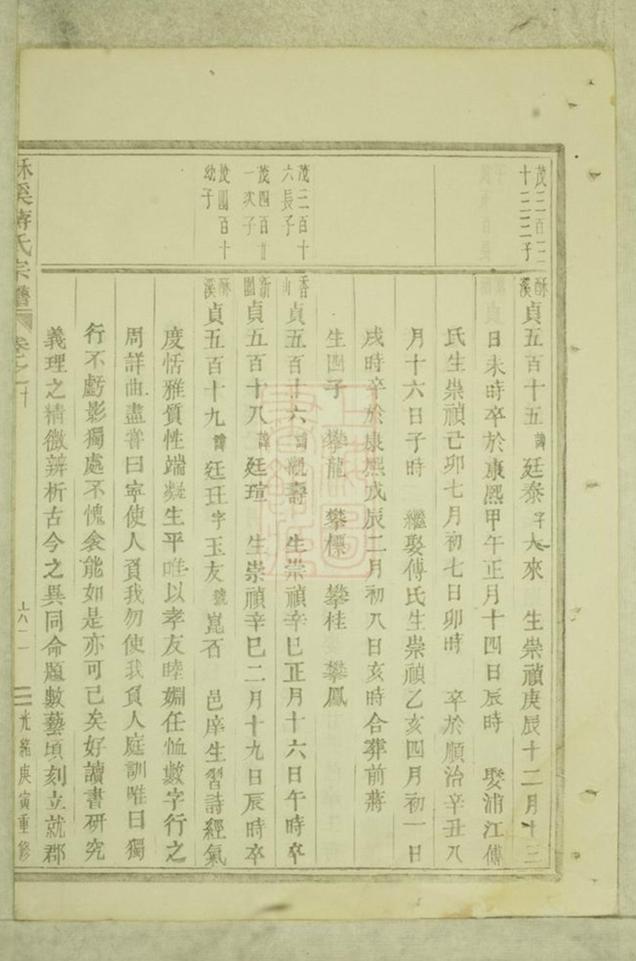 茂三百三
十三三子
酥溪
貞五百十五 諱 廷泰 字 大來 生崇禎庚辰十二月十三
日未時卒於康熙甲午正月十四日辰時 娶浦江傅
氏生崇禎己卯七月初七日卯時 卒於順治辛丑八
月十六日子時 繼娶傅氏生崇禎乙亥四月初一日
戌時卒於康熙戊辰二月初八日亥時合葬前蔣
生四子 攀龍 攀標 攀桂 攀鳳
茂三百十
六長子
香山
貞五百十六 諱 觀壽 生崇禎辛巳正月十六日午時卒
茂四百廿
一次子
新園
貞五百十八 諱 廷瑄 生崇禎辛巳二月十九日辰時卒
茂四百十
幼子
酥溪
貞五百十九 諱 廷玨 字 玉友 號 崑石 邑庠生習詩經氣
度恬雅質性端凝生平唯以孝友睦婣任恤數字行之
周詳曲盡嘗曰寧使人負我勿使我負人庭訓唯曰獨
行不虧影獨處不愧衾能如是亦可已矣好讀書研究
義理之精微辨析古今之異同命題數藝頃刻立就郡
酥溪蔣氏宗譜 卷之十
光緒庚寅重修